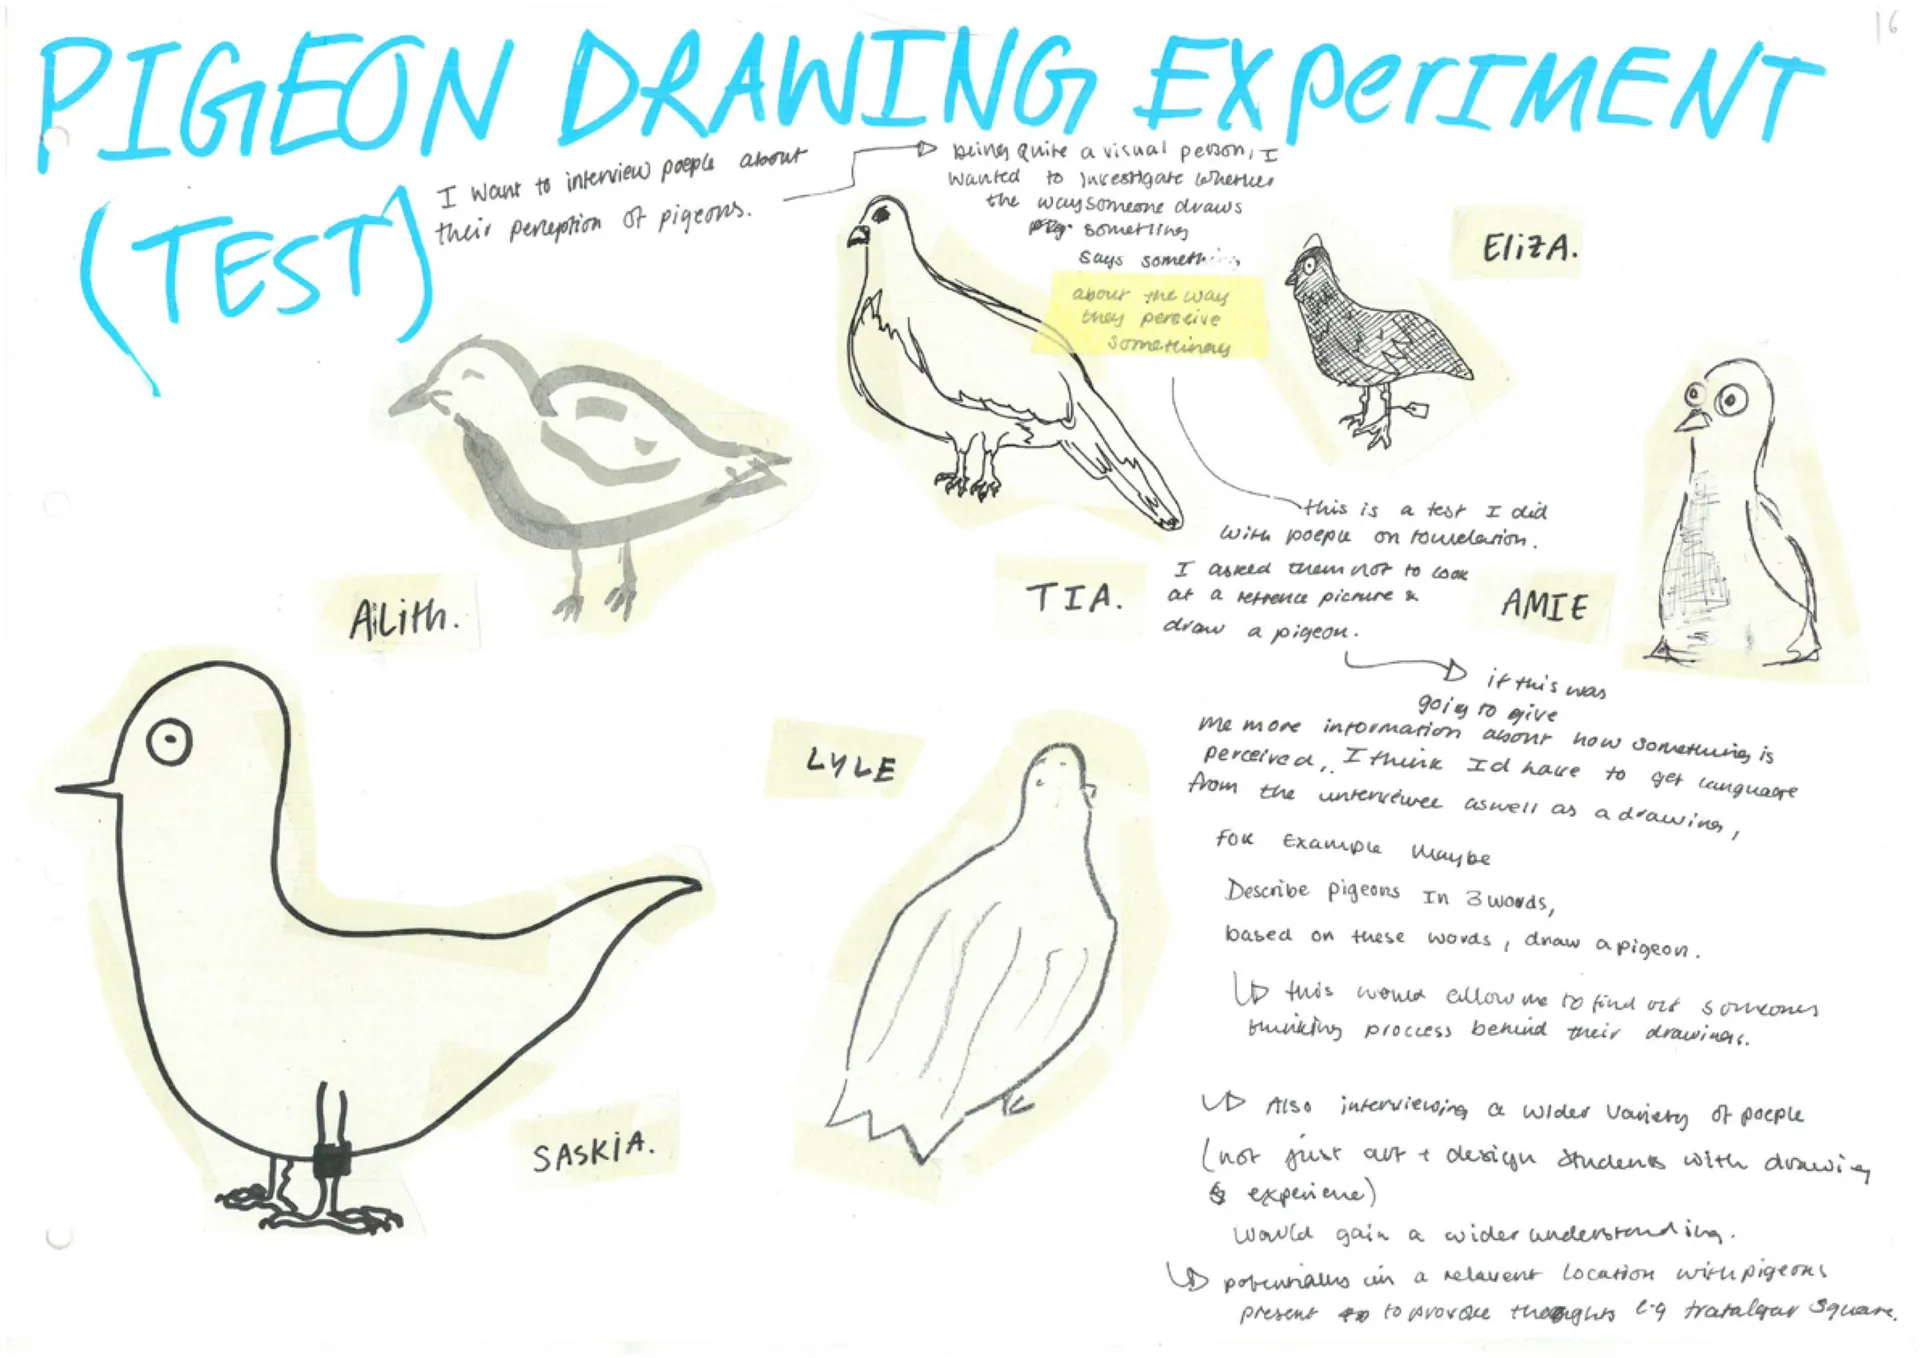 16
PIGEON DRAWING EXPERIMENT
(TEST)
I want to interview poeple about
their perception of pigeons.
Being quite a visual person, I
wanted to investigate whether
the way someone draws
something
says something
about the way
they perceive
something
ELIZA.
this is a test I did
with poeple on foundation.
I asked them not to look
at a refrence picture &
draw a pigeon.
AILith.
TIA.
AMIE
if this was
going to give
me more information about how something is
perceived, I think Id have to get language
from the interviewee aswell as a drawing,
LYLE
FOR EXAMPLE Maybe
Describe pigeons In 3 words,
based on these words, draw a pigeon.
this would allow me to find out someones
thinking proccess behind their drawings.
SASKIA.
Also interviewing a wider variety of poeple
(not just art + design students with drawing
experience)
would gain a wider understanding.
potentially in a relavent location with pigeons
present to provoke thoughts e.g trafalgar square.